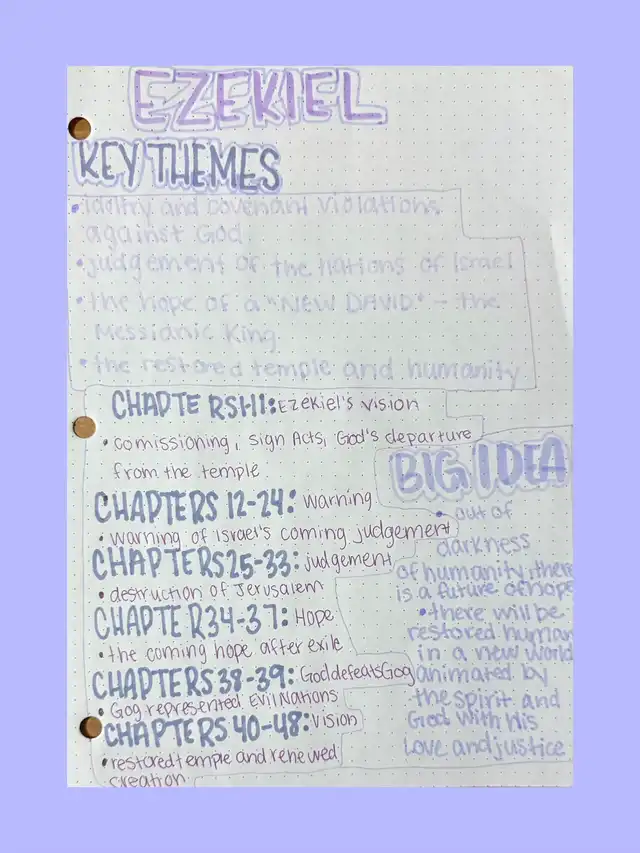 EZEKIEL
KEY THEMES
• idoltry and covenant violations
against God
• judgement of the nations of Israel
• the hope of a "NEW DAVID" - the
Messianic King
• the restored temple and humanity
CHAPTERS 1-11: Ezekiel's vision
• comissioning, sign Acts, God's departure
from the temple
CHAPTERS 12-24: Warning
• warning of Israel's coming judgement
CHAPTERS 25-33: judgement
• destruction of Jerusalem
CHAPTER 34-37: Hope
• the coming hope after exile
CHAPTERS 38-39: God defeats Gog
• Gog represented Evil Nations
CHAPTERS 40-48: Vision
• restored temple and renewed
creation
BIG IDEA
• out of
darkness
of humanity, there
is a future of hope
• there will be
restored human
in a new world
animated by
the spirit and
God with His
love and justice